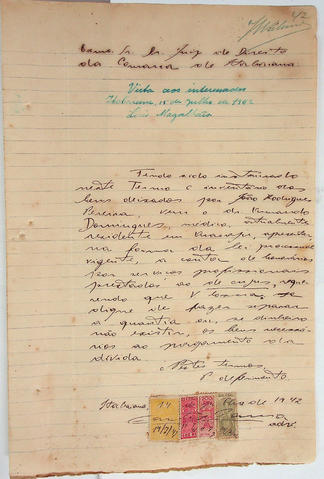 42
Exmo. Sr. Dr. Juiz de Direito
da Comarca de Itabaiana
Vista aos interessados
15 de Julho de 1942
Luiz Magalhães
Tendo sido instaurado
neste Termo o inventario dos
bens deixados por João Rodrigues
Pereira, vem o dr.
Domingues, medico, actualmente
residente em apresentar
na forma da lei processual
vigente, a conta de honorarios
por serviços profissionais
prestados ao de cujus, reque-
rendo que V. Excia. se
digne de fazer separar
a quantia ou, se dinheiro
não existir, os bens necessa-
rios ao pagamento da
divida.
Nestes termos,
P. deferimento.
Itabaiana, de 1942
adv.